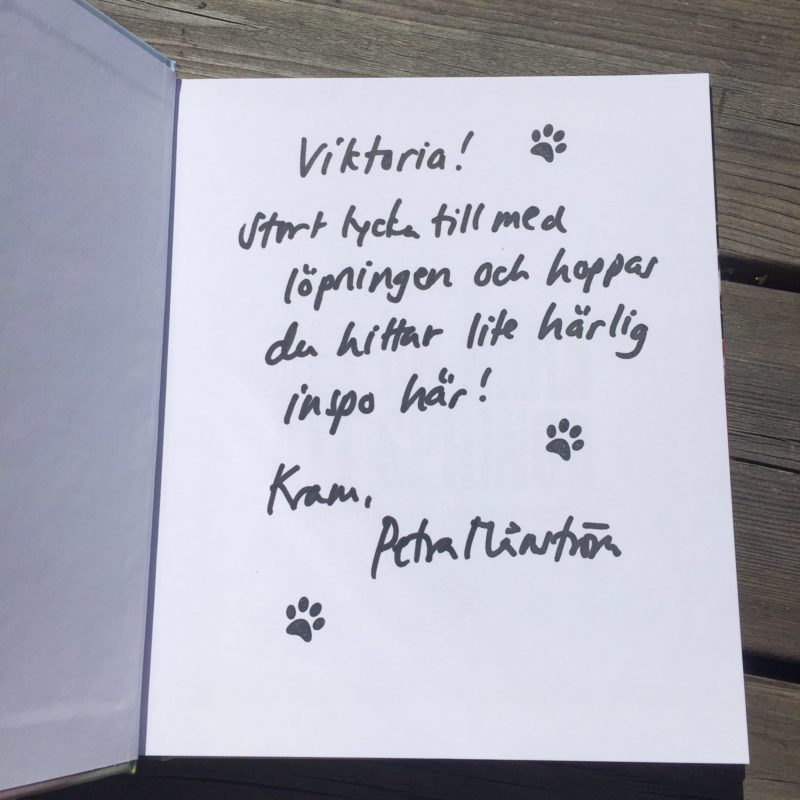 Viktoria!
Stort lycka till med
löpningen och hoppas
du hittar lite härlig
inspo här!
Kram,
Petra Månström